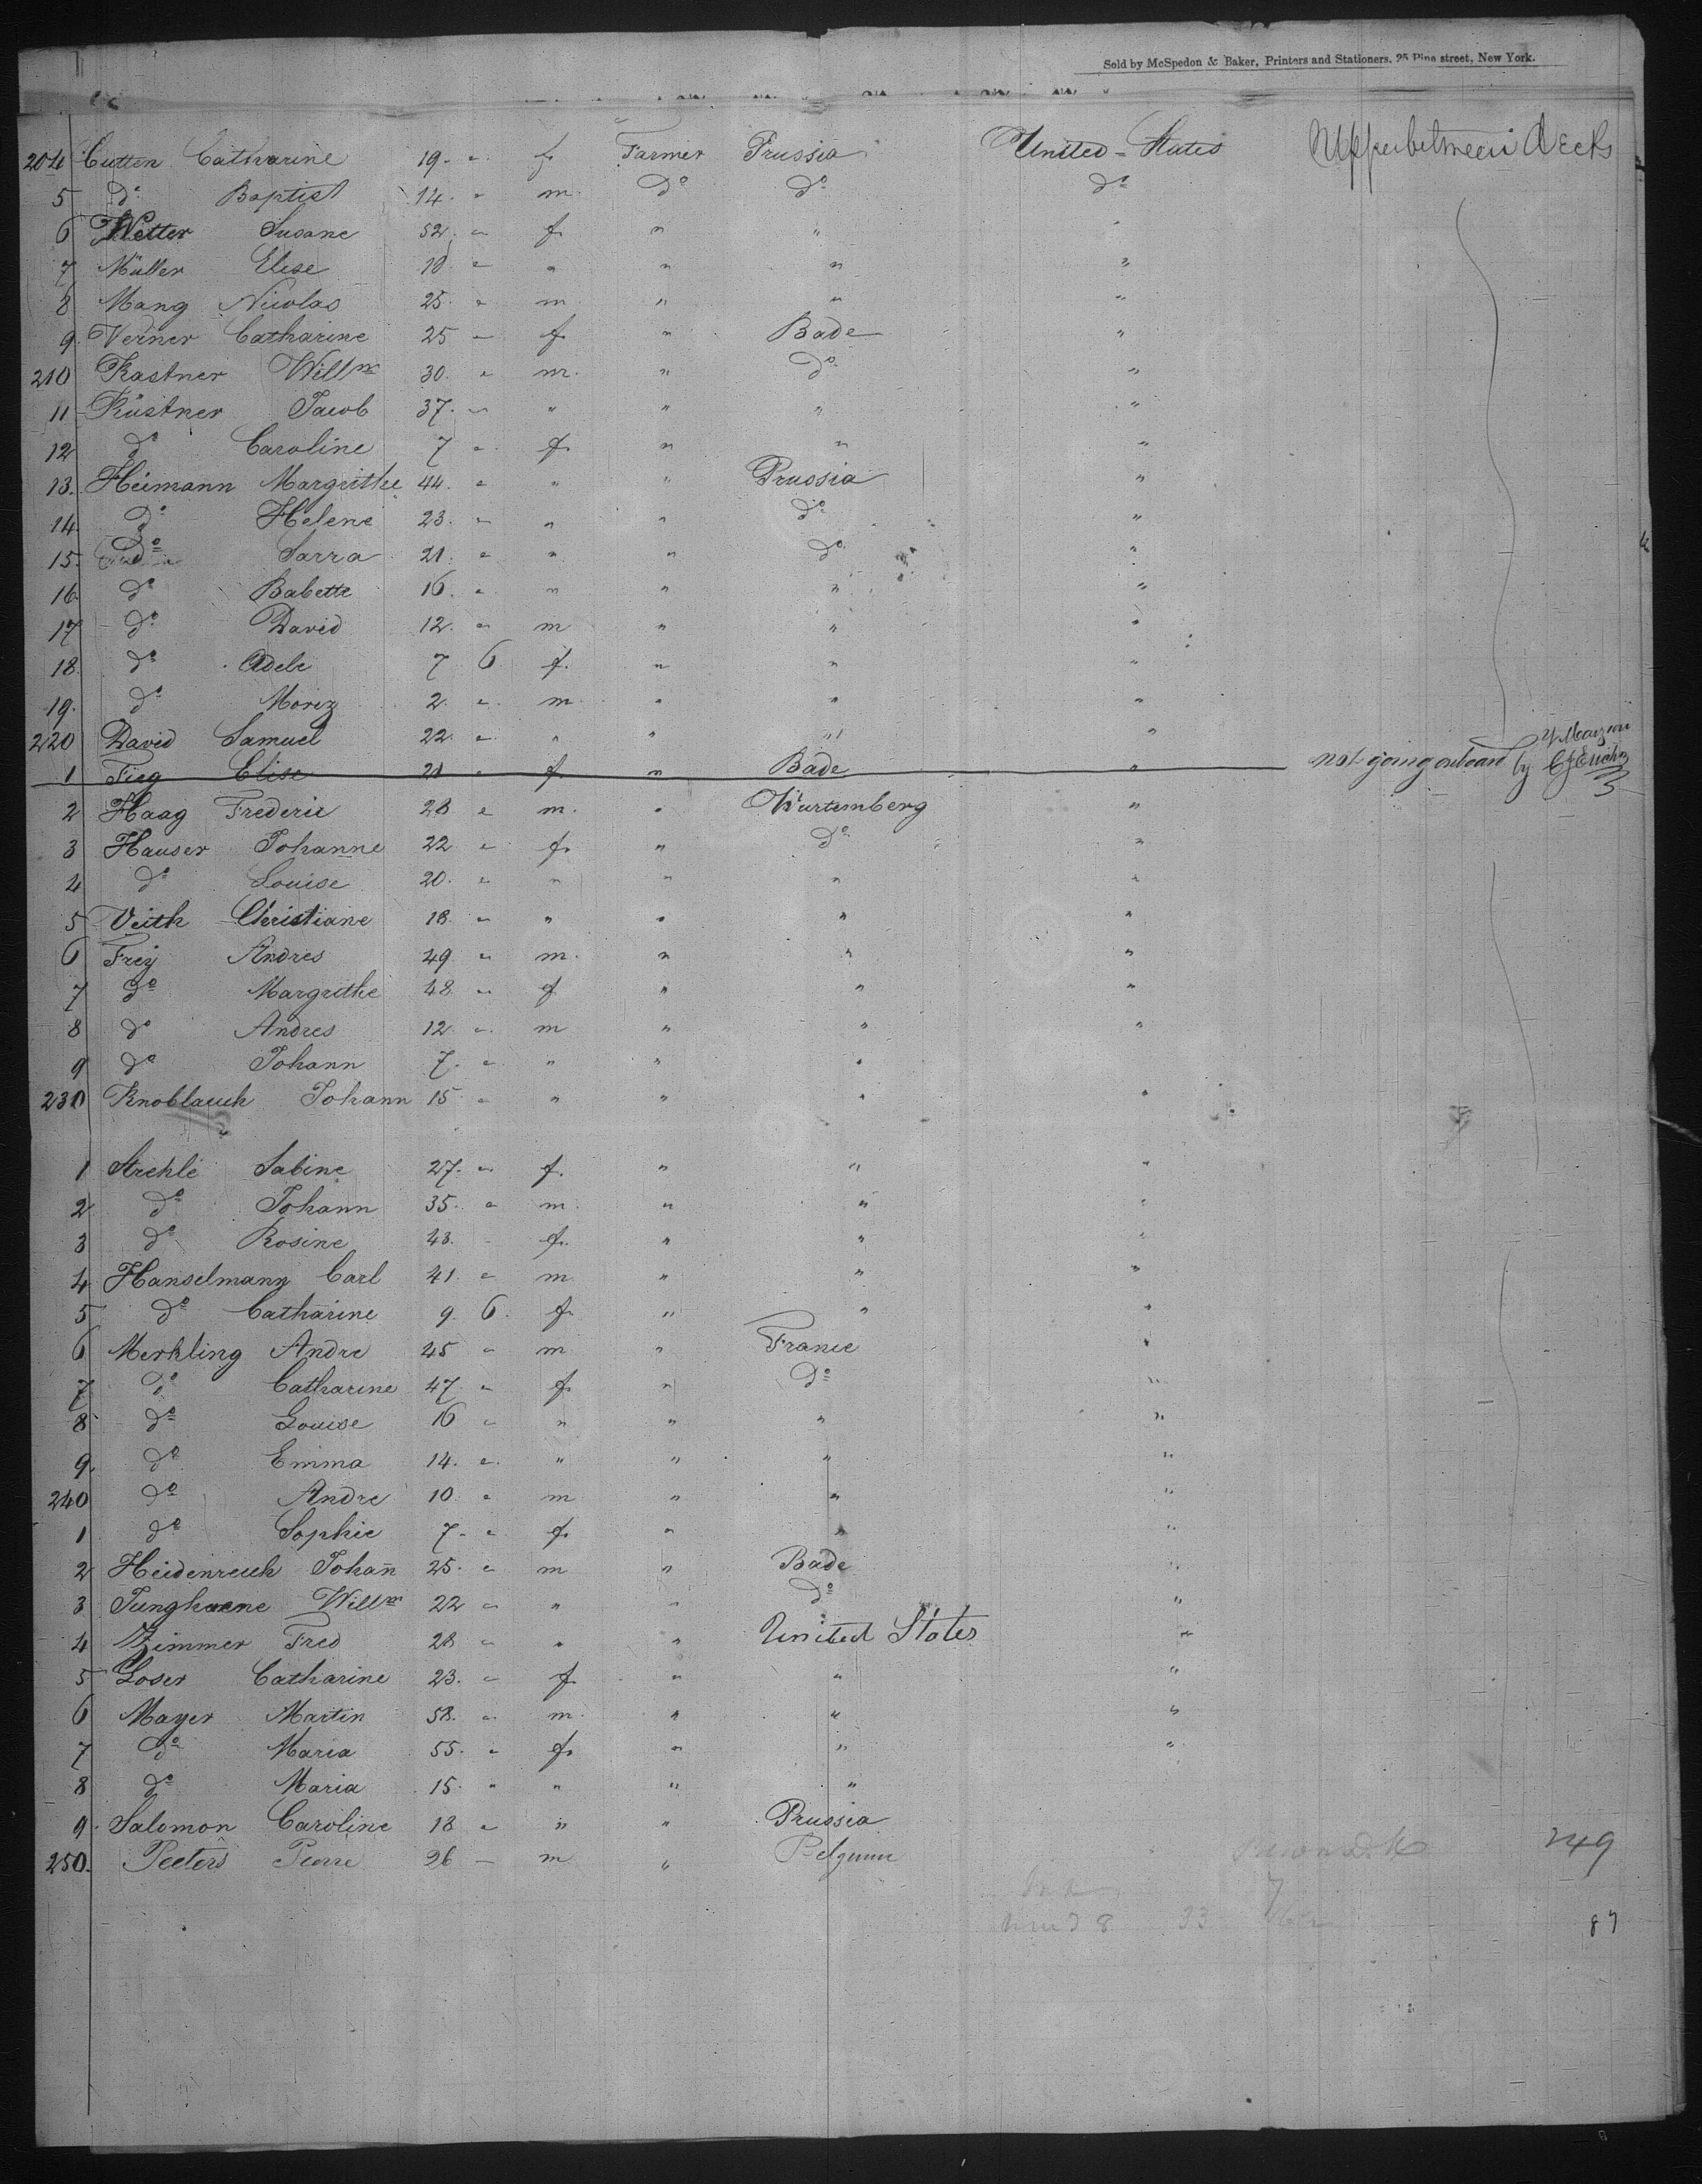 Sold by McSpedon & Baker, Printers and Stationers. 25 Pine street, New York.
204 Cutten Catharine 19 " f Farmer Prussia United-States Upper between decks
5 do Baptist 14 " m. do do do
6 Wetter Susane 52 " f " " "
7 Müller Elise 18 " " " " "
8 Mang Nicolas 25 " m " " "
9 Verner Catharine 25 " f " Bade "
210 Kastner Willm 30 " m. " do "
11 Küstner Jacob 37 " " " " "
12 do Caroline 7 " f " " "
13. Heimann Margrithe 44 " " " Prussia "
14 do Helene 23 " " " do "
15. do Sarra 21 " " " do "
16 do Babette 16 " " " " "
17 do David 12 " m " " "
18 do Adele 7 6 f. " " "
19. do Moriz 2 " m " " "
220 David Samuel 22 " " " " "
1 Fieg Elise 21 " f " Bade " not going onboard by
2 Haag Frederic 28 " m. " Wurtemberg "
3 Hauser Johanne 22 " f " do "
4 do Louise 20 " " " " "
5 Veith Christiane 18 " " " " "
6 Frey Andres 49 " m. " " "
7 do Margrithe 48 " f " " "
8 do Andres 12 " m " " "
9 do Johann 7 " " " " "
230 Knoblauch Johann 15 " " " " "
1 Strehle Sabine 27 " f. " " "
2 do Johann 35 " m " " "
3 do Rosine 43 " f. " " "
4 Hanselmann Carl 41 " m " " "
5 do Catharine 9 6 f " " "
6 Merkling Andre 45 " m " France "
7 do Catharine 47 " f " do "
8 do Louise 16 " " " " "
9. do Emma 14 " " " " "
240 do Andre 10 " m " " "
1 do Sophie 7 " f " " "
2 Heidenreich Johan̄ 25 " m " Bade "
3 Junghenne Willm 22 " " " do "
4 Zimmer Fred 28 " " " United States "
5 Loser Catharine 23 " f " " "
6 Mayer Martin 58 " m " " "
7 do Maria 55 " f " " "
8 do Maria 15 " " " "
9. Salomon Caroline 18 " " " Prussia
250. Peeters Pierre 26 — m " Belgium 249
8 33 87